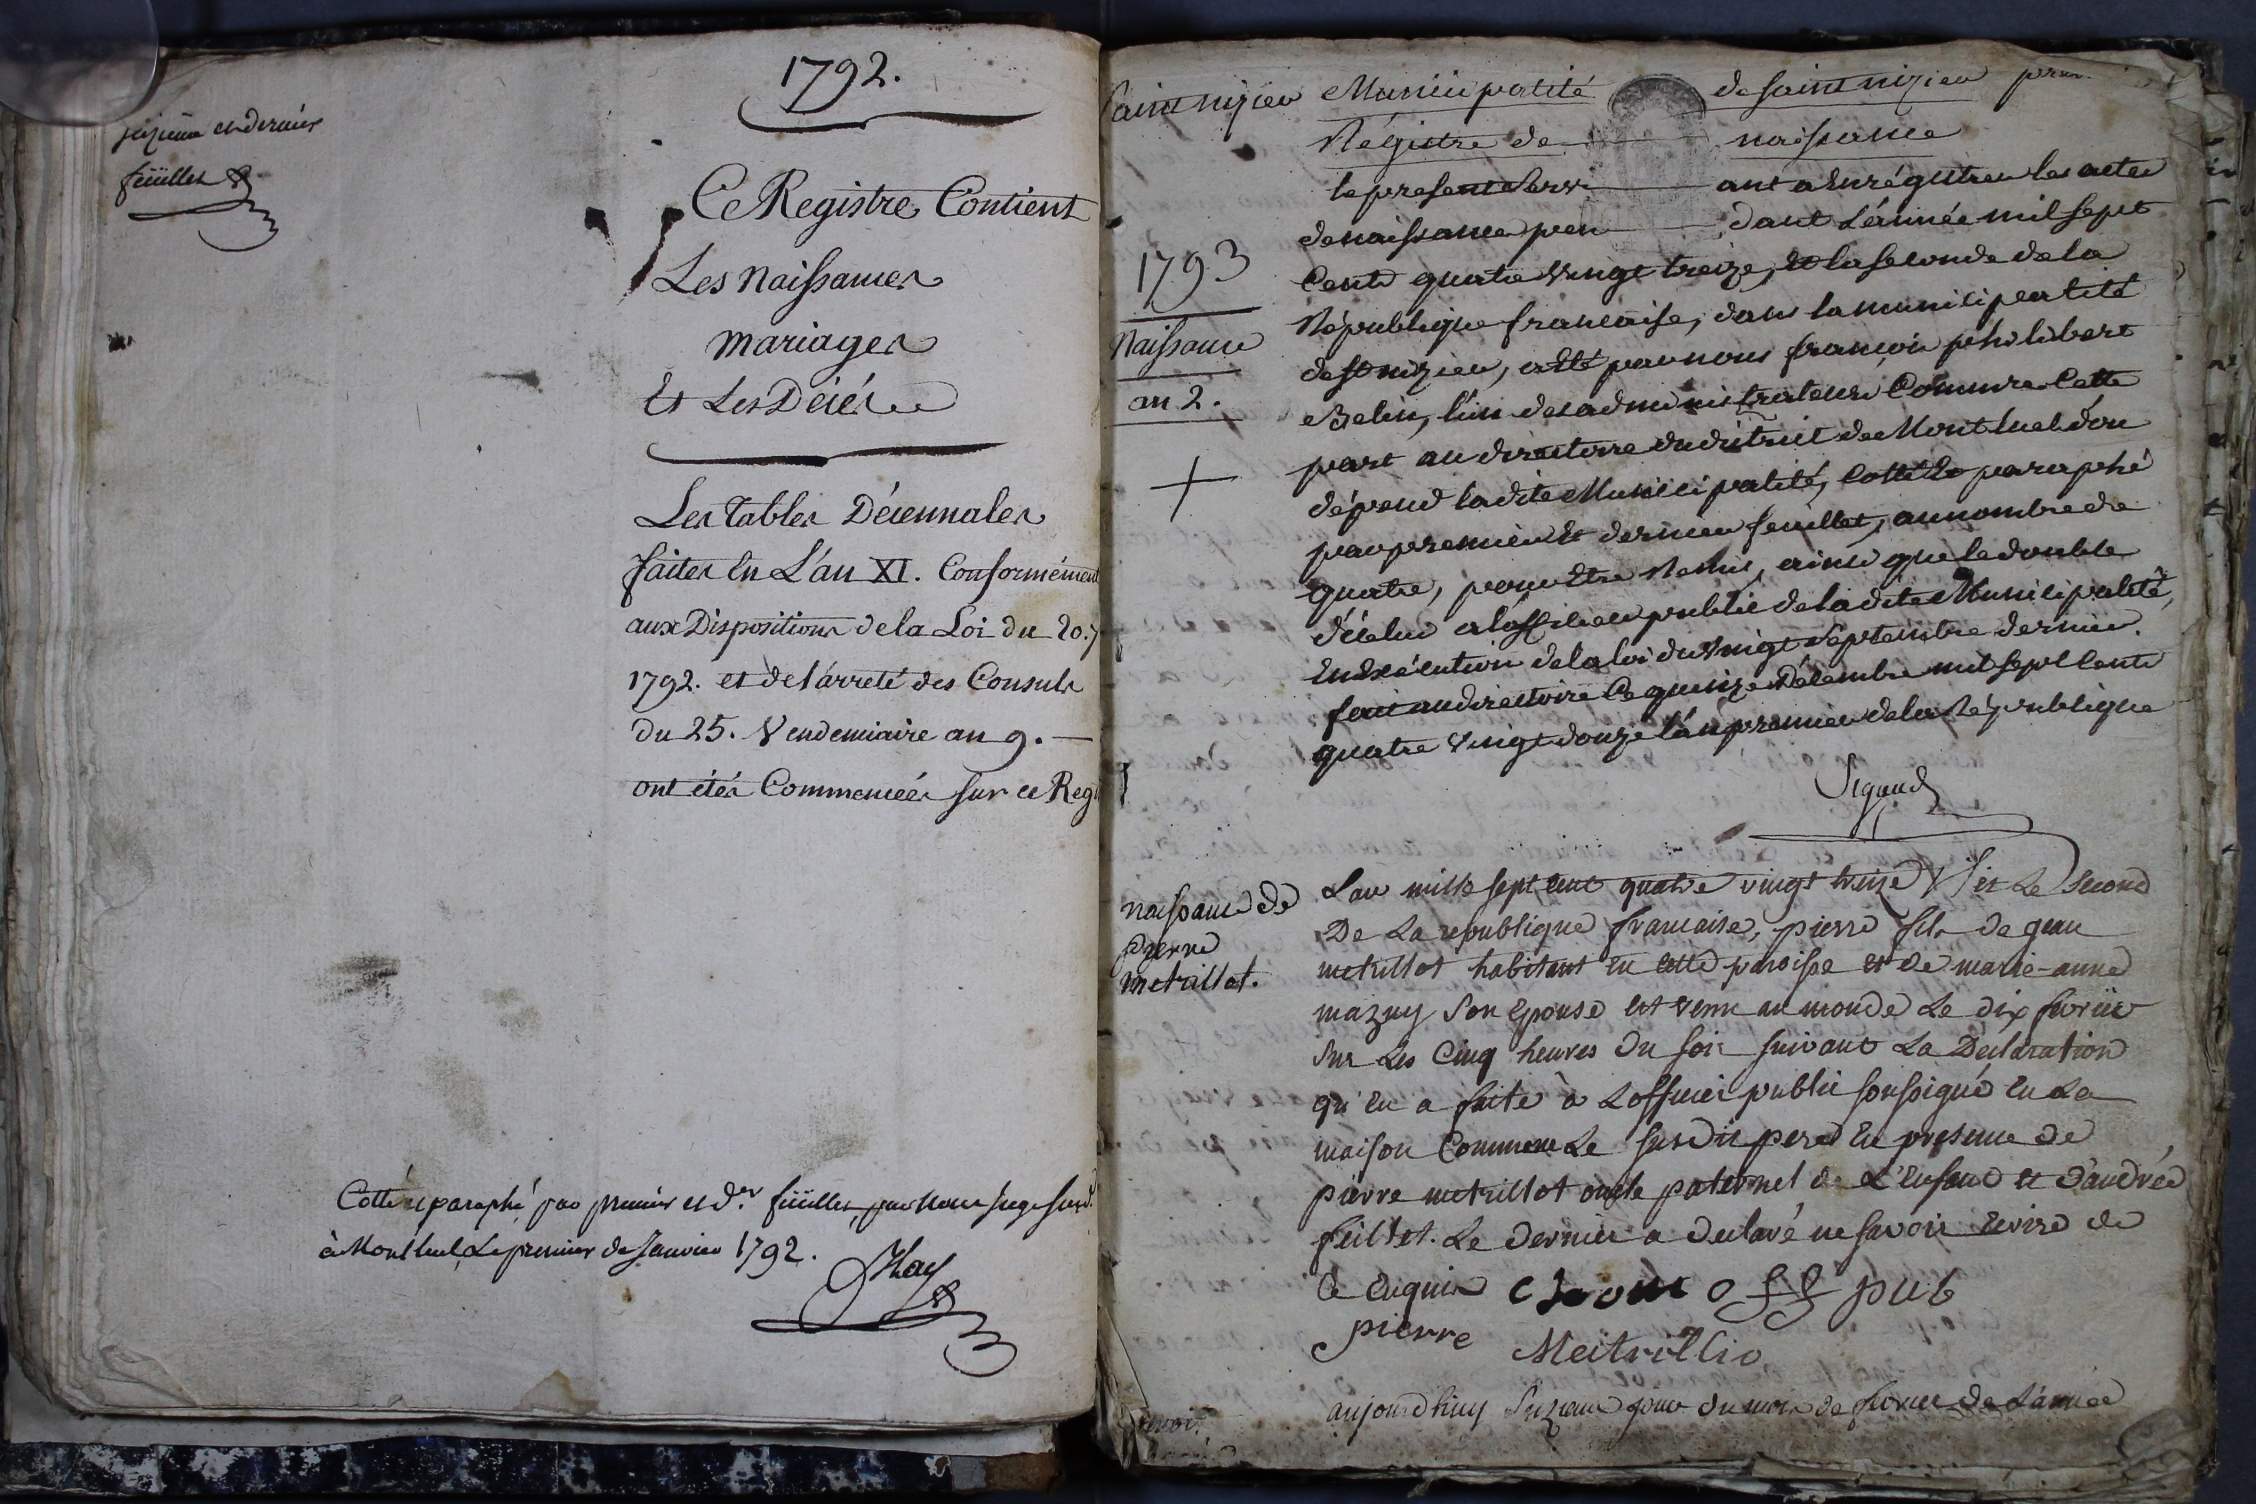 seizieme et dernier
feüillet
1792.
Ce Registre Contient
Les Naissances
mariages
Et Les Décés
Les Tables Décennales
faites en L'an XI. Conformément
aux Dispositions de la Loi du 20.
1792. et de l'arreté des Consuls
du 25. Vendemiaire an 9. —
ont étés Commencées sur ce Reg
Cotté et paraphé par premier et der. feüillet, par Nous Juge
à Montluel, Le premier de Janvier 1792.
Saint nizier Municipalité de saint nizier
Régistre de naissance
le present servant a Enrégistrer les actes
de naissance pendant L'année mil sept
1793
Cents quatre Vingt treize, et la seconde de la
République francaise, dans la municipalité
Naissance
de St nizier, a Eté par nous francois philibert
an 2.
Belin, l'un des administrateurs Commre Cette
part au directoire du district de Montluel d'ou
dépend ladite Municipalité, Cotté et paraphé
par premier et dernier feuillet, au nombre de
quatre, pour Etre Remis, ainsi que le double
d'icelui a l'officier public de ladite Municipalité,
En Exécution de la loi du Vingt Septembre dernier.
fait au directoire Ce quinze Décembre mil sept Cents
quatre Vingt douze l'an premier de la République
Sigaud
naissance de
pierre
metrillot.
L'an mille sept cent quatre vingt treize et Le second
De La republique francaise, pierre fils de jean
metrillot habitant en cette paroisse et de marie-anne
mazuy son epouse est venu au monde Le dix fevrier
sur Les Cinq heures du soir suivant La Declaration
qu'en a faite à L'officier public soussigné en La
maison Commune Le susdit pere en presence de
pierre metrillot oncle paternel de L'enfant et d'andrée
feillet. Le dernier a declaré ne savoir ecrire de
Ce enquis off pub
pierre Meitrillio
aujourdhuy jour du mois de fevrier de L'année